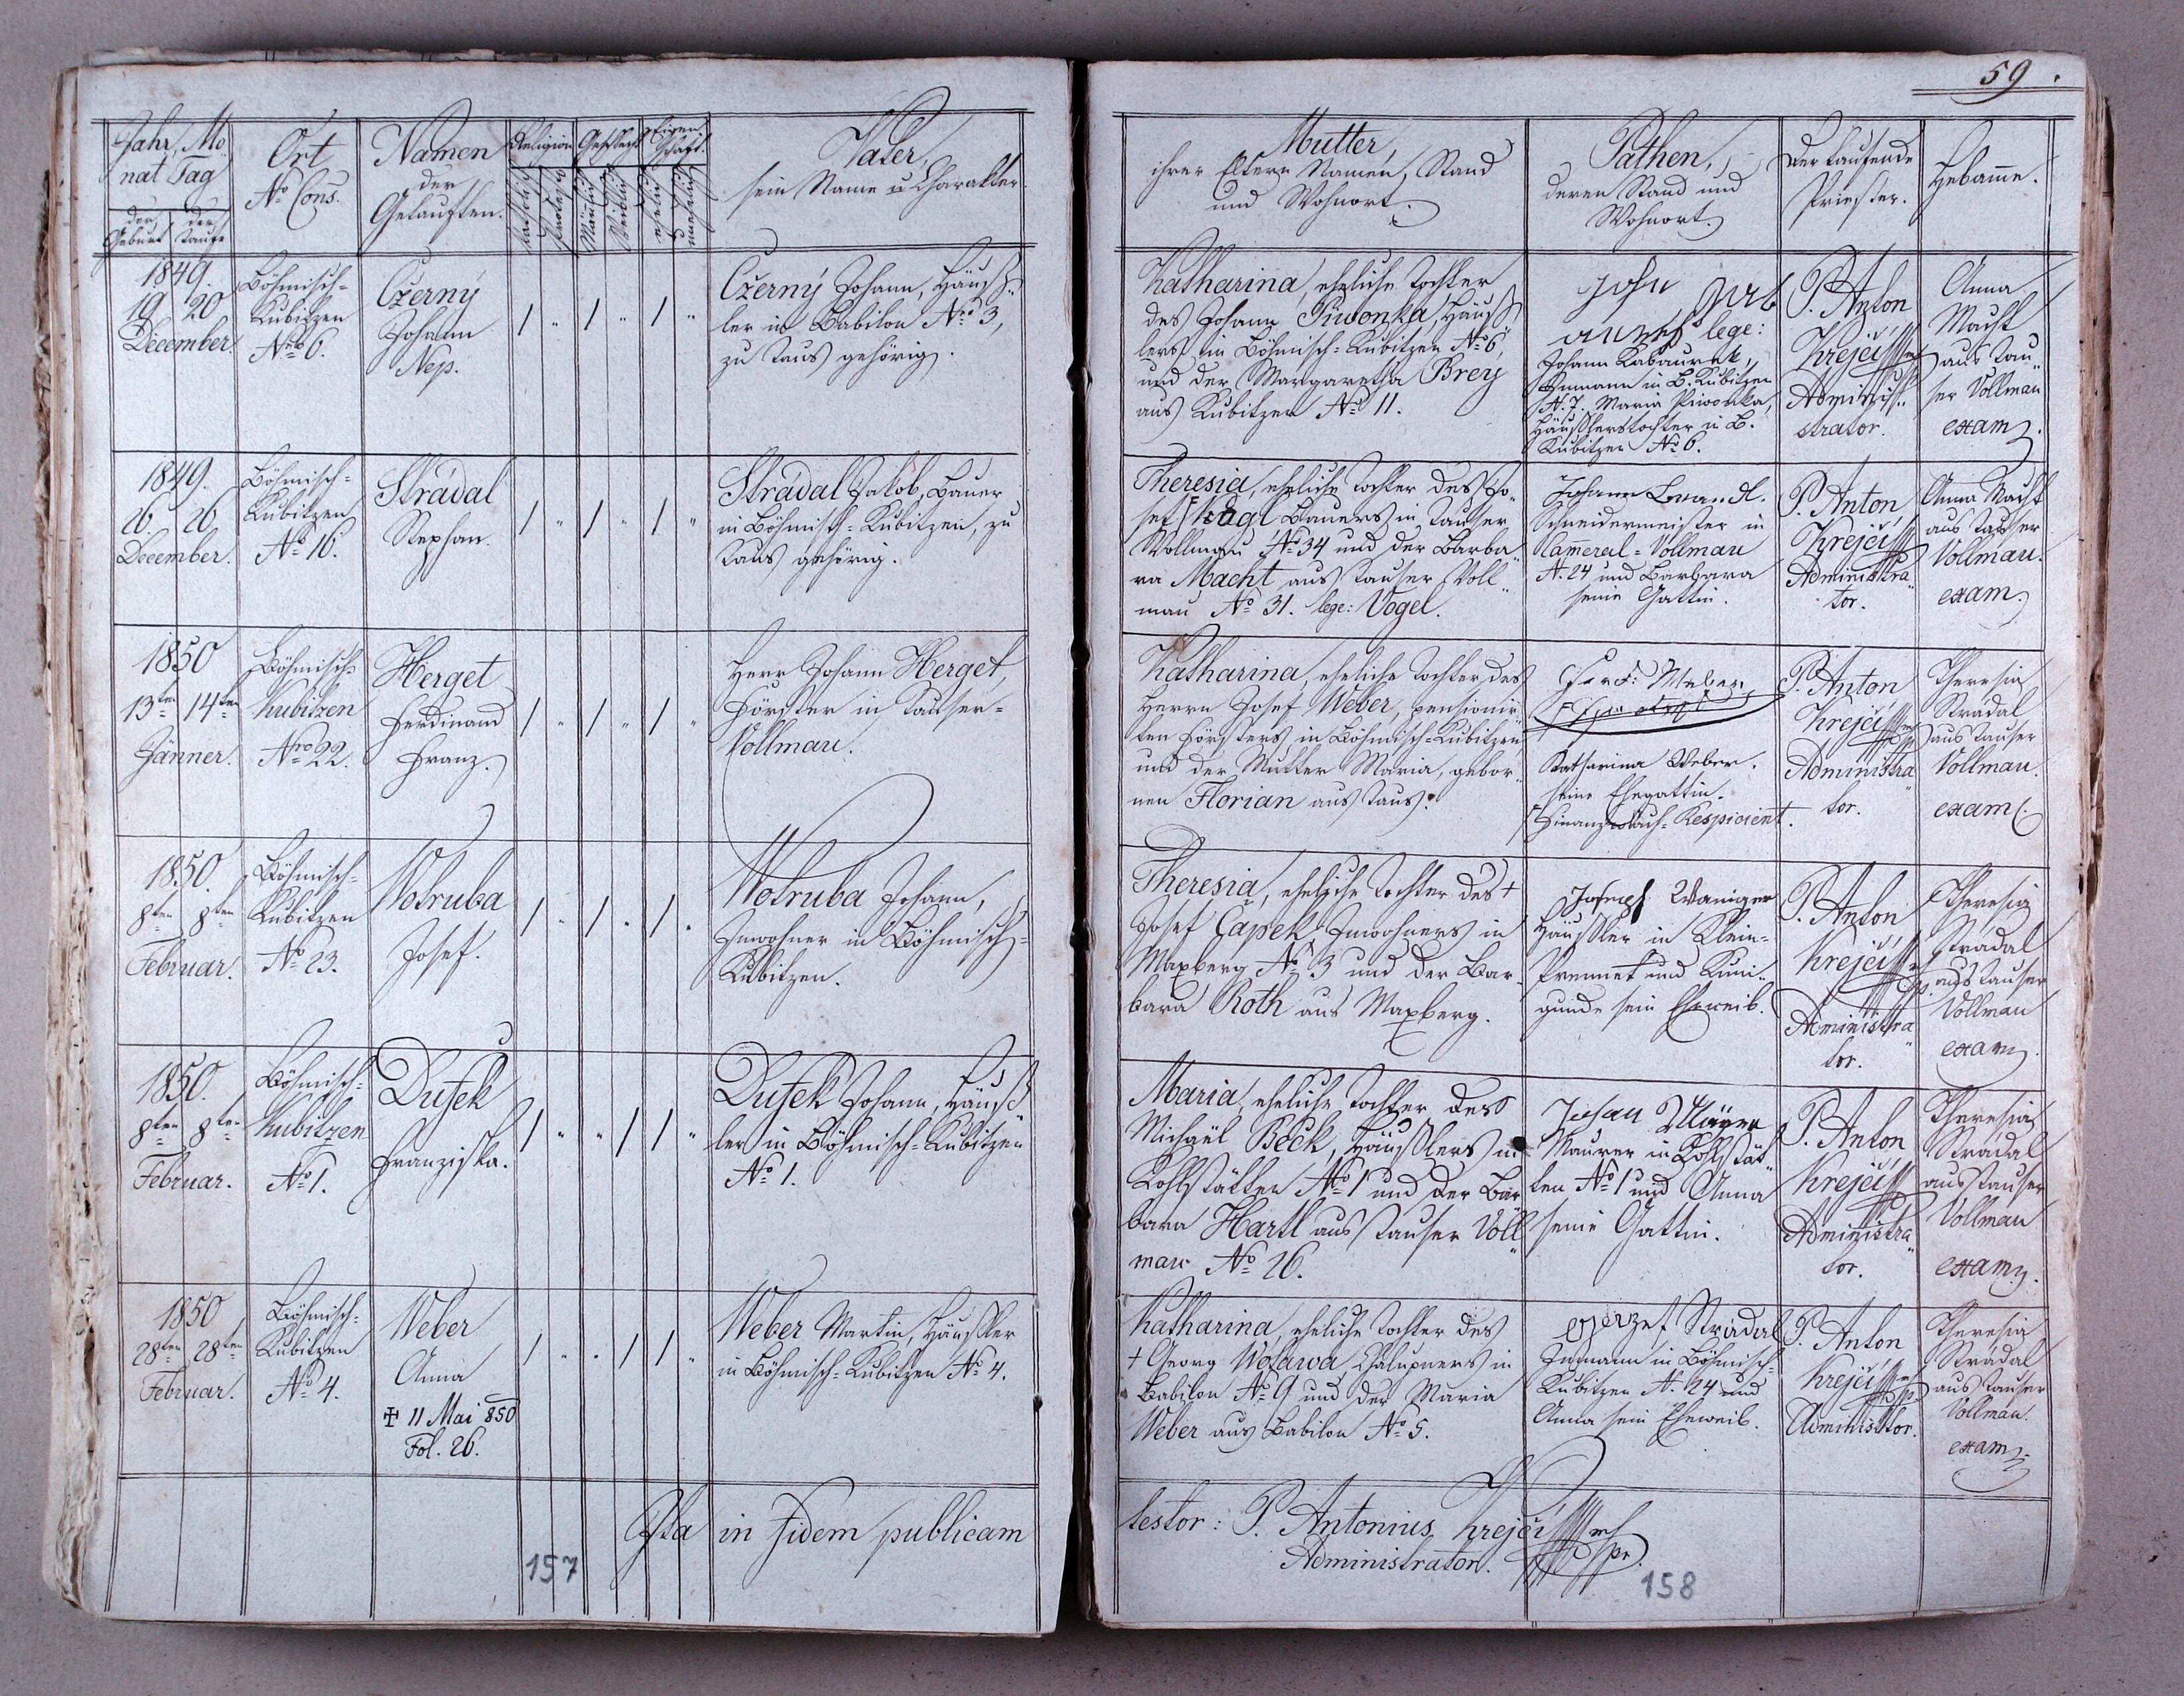 59.
Jahr, Mo
nat Tag
der Geburt
der Taufe
Ort
No Cons.
Namen
der
Getauften.
Religion
Geschlecht
Eigen-
schaft.
Vater,
sein Name u Charakter.
Mutter,
ihrer Eltern Namen, Stand
und Wohnort.
Pathen,
deren Stand und
Wohnort.
Der taufende
Priester.
Hebamme.
1849.
19 20
December.
Böhmisch-
Kubitzen
Nro 6.
Czerný
Johann
Nep.
Czerný Johann, Häusz-
ler in Babilon Nro 3,
zu Taus gehörig.
Katharina, eheliche Tochter
des Johann Piwonka, Häusz
lers in Böhmisch-Kubitzen No 6,
und der Margaretha Brey
aus Kubitzen No 11.
lege:
Johann Kabaurek,
Inmann in B. Kubitzen
N. 7. Maria Piwonka,
Häuslerstochter in B.
Kubitzen No 6.
P. Anton
Krejčí
Admini-
strator.
Anna
Macht
aus Tau-
ser Vollmau
exam.
1849.
26. 26
December.
Böhmisch-
Kubitzen
No 16.
Strádal
Stephan.
Strádal Jakob, Bauer
in Böhmisch-Kubitzen, zu
Taus gehörig.
Theresia, eheliche Tochter des Jo-
sef Bauers in Tauser
Vollmau No 34 und der Barba-
ra Macht aus Tauser Voll-
mau No 31. lege: Vogel.
Johann
Schneidermeister in
Cameral-Vollmau
N. 24 und Barbara
seine Gattin.
P. Anton
Krejčí
Administra-
tor.
Anna Macht
aus Tauser
Vollmau.
exam.
1850
13ten 14ten
Jänner.
Böhmisch-
Kubitzen
Nro 22.
Herget
Ferdinand
Franz.
Herr Johann Herget,
Förster in Tauser-
Vollmau.
Katharina, eheliche Tochter des
Herrn Josef Weber, pensionir-
ten Försters in Böhmisch-Kubitzen
und der Mutter Maria, gebor-
nen Florian aus Taus.
Ferd: Weber
Katharina Weber.
seine Ehegattin.
Finanzwach-Respicient.
P. Anton
Krejčí
Administra-
tor.
Theresia
Strádal
aus Tauser
Vollmau.
exam.
1850.
8ten 8ten
Februar.
Böhmisch-
Kubitzen
No 23.
Wotruba
Josef.
Wotruba Johann,
Inwohner in Böhmisch-
Kubitzen.
Theresia, eheliche Tochter des +
Josef Čapek Inwohners in
Maxberg No 3 und der Bar-
bara Roth aus Maxberg.
Joseph Waniger
Häusler in Klein-
Prennet und Kuni-
gunde sein Eheweib.
P. Anton
Krejčí
Administra-
tor.
Theresia
Strádal
aus Tauser
Vollmau
exam.
1850.
8ten 8ten
Februar.
Böhmisch-
Kubitzen
No 1.
Dušek
Franziska.
Dušek Johann, Häusz-
ler in Böhmisch-Kubitzen
No 1.
Maria, eheliche Tochter des
Michael Beck, Häuslers in
Kohlstätten No 1 und der Bar
bara Hartl aus Tauser Voll-
mau No 26.
Johan
Maurer in Kohlstät-
ten No 1 und Anna
seine Gattin.
P. Anton
Krejčí
Administra-
tor.
Theresia
Strádal
aus Tauser
Vollmau
exam.
1850
28ten 28ten
Februar.
Böhmisch-
Kubitzen
No 4.
Weber
Anna
✠ 11 Mai 850
Fol. 26.
Weber Martin, Häusler
in Böhmisch-Kubitzen No 4.
Katharina, eheliche Tochter des
+ Georg Wolawa, Chalupners in
Babilon No 9 und der Maria
Weber aus Babilon No 5.
Strádal
Inmann in Böhmisch-
Kubitzen N. 24 und
Anna sein Eheweib.
P. Anton
Krejčí
Administrator.
Theresia
Strádal
aus Tauser
Vollmau.
exam.
Ita in fidem publicam
testor: P. Antonius Krejčí
Administrator.
157
158